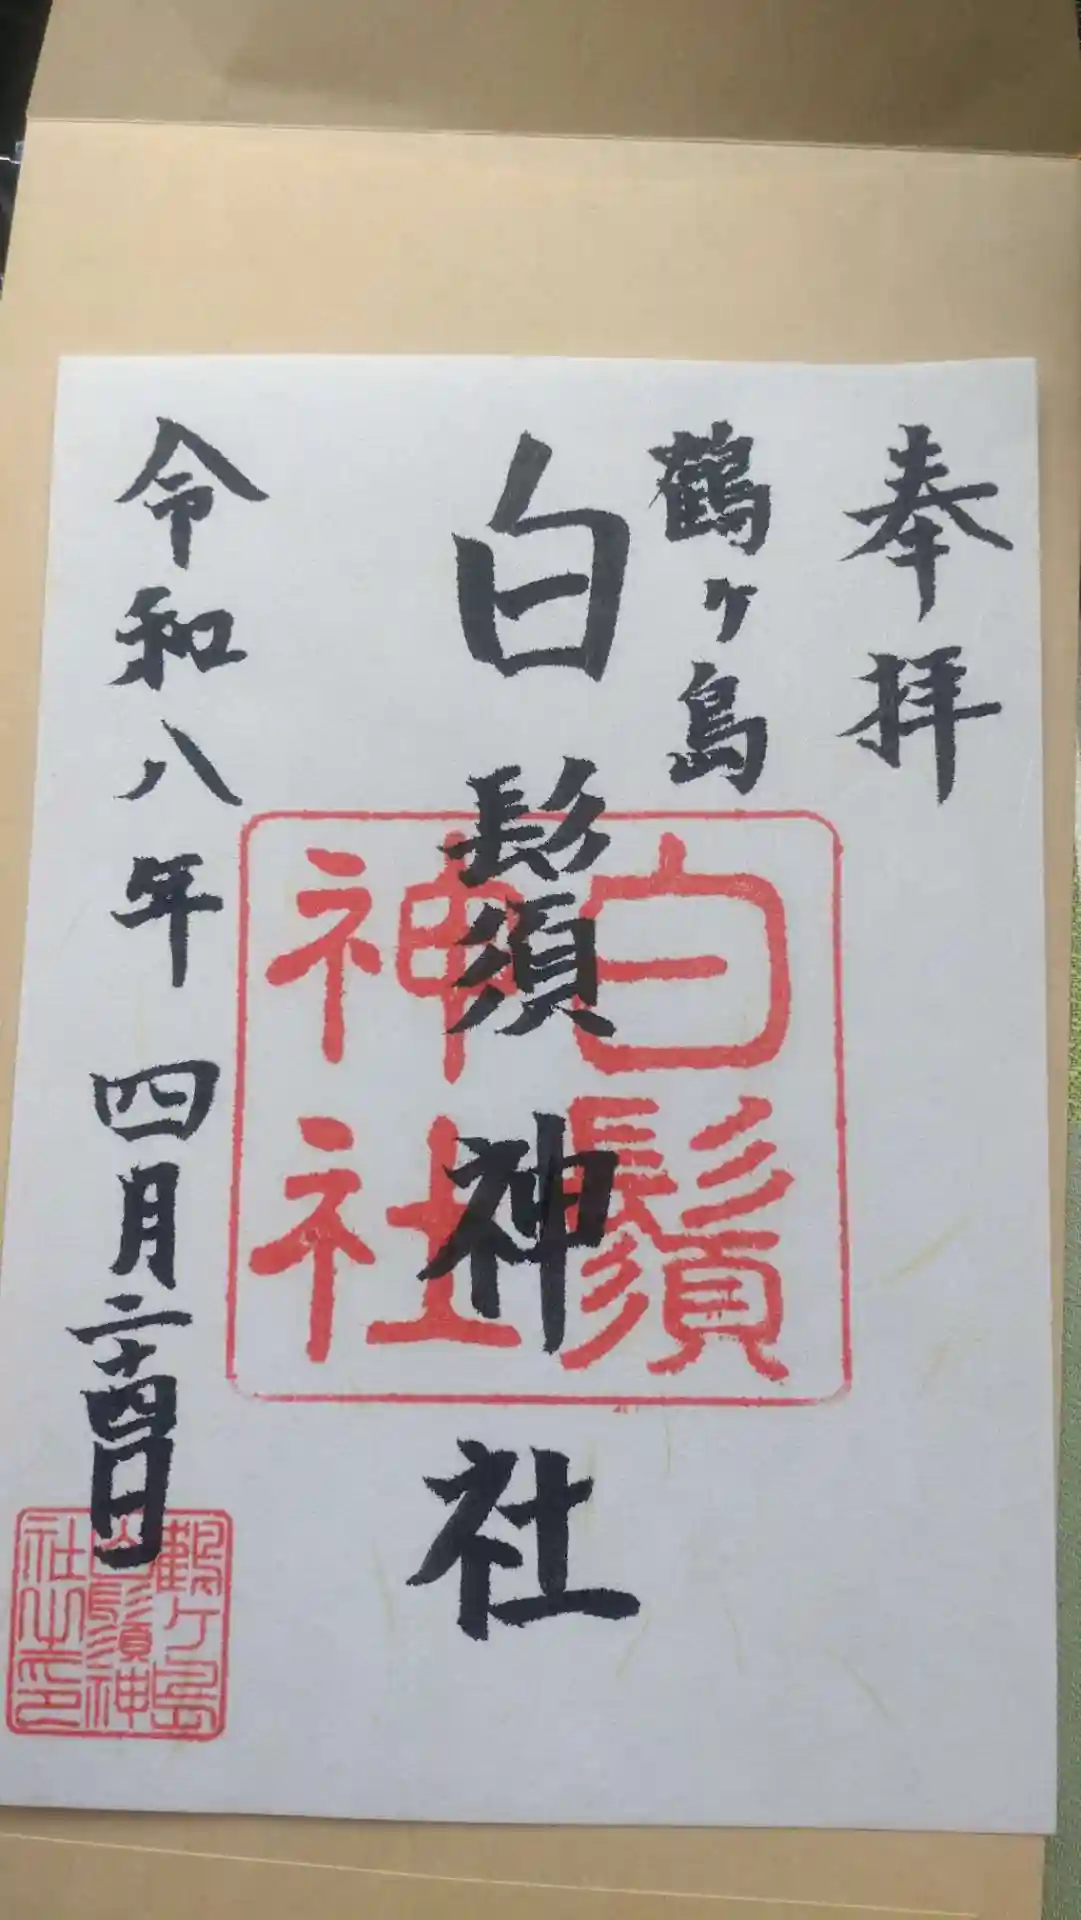 奉拝
鶴ヶ島
白鬚神社
令和八年 四月二十四日
白鬚
神社
鶴ヶ島
白鬚神
社之印